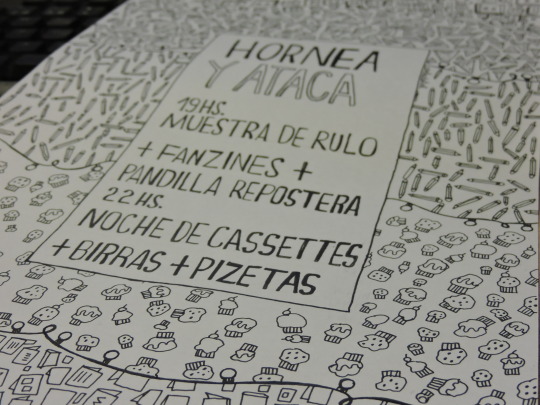 HORNEA
Y ATACA
19HS.
MUESTRA DE RULO
+ FANZINES +
PANDILLA REPOSTERA
22 HS.
NOCHE DE CASSETTES
+ BIRRAS + PIZETAS